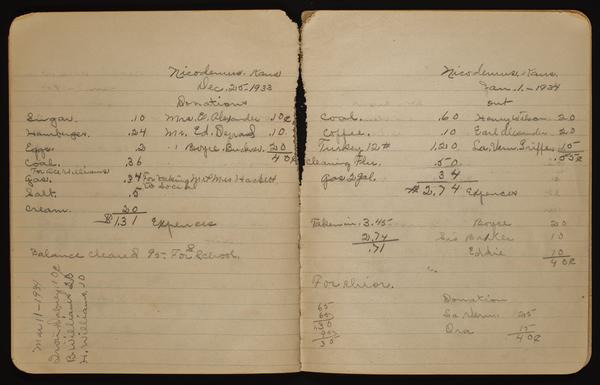 Nicodemus. Kans
Dec. 25-1933
Donations
Sugar. .10 Mrs. E. Alexander .10¢
Hamburger. .24 Mr. Ed. .10
Eggs .2 Boyce 20
40¢
Coal. 36
Gas. .34 For taking Mr & Mrs Hackett to Social
Salt. .5
Cream. 20
$1.31 Expences
Balance cleared 95- For S School.
Mar 11-1934
10¢
B. Williams 20
H. Williams 10
Nicodemus, Kans.
Jan. 1.-1934
out
Coal. .60 Henry Wilson 20
Coffee. .10 Earl Alexander 20
Turkey 12# 1.20 La Vern Griffey 15
.55¢
Cleaning Flu. .50
Gas 2 gal. 34
$2.74 Expences
Taken in. 3.45 Boyce 20
2.74 10
.71 Eddie 10
40¢
For choir.
Donation
65 La Vern. 25
65 Ora 15
130 40¢
30